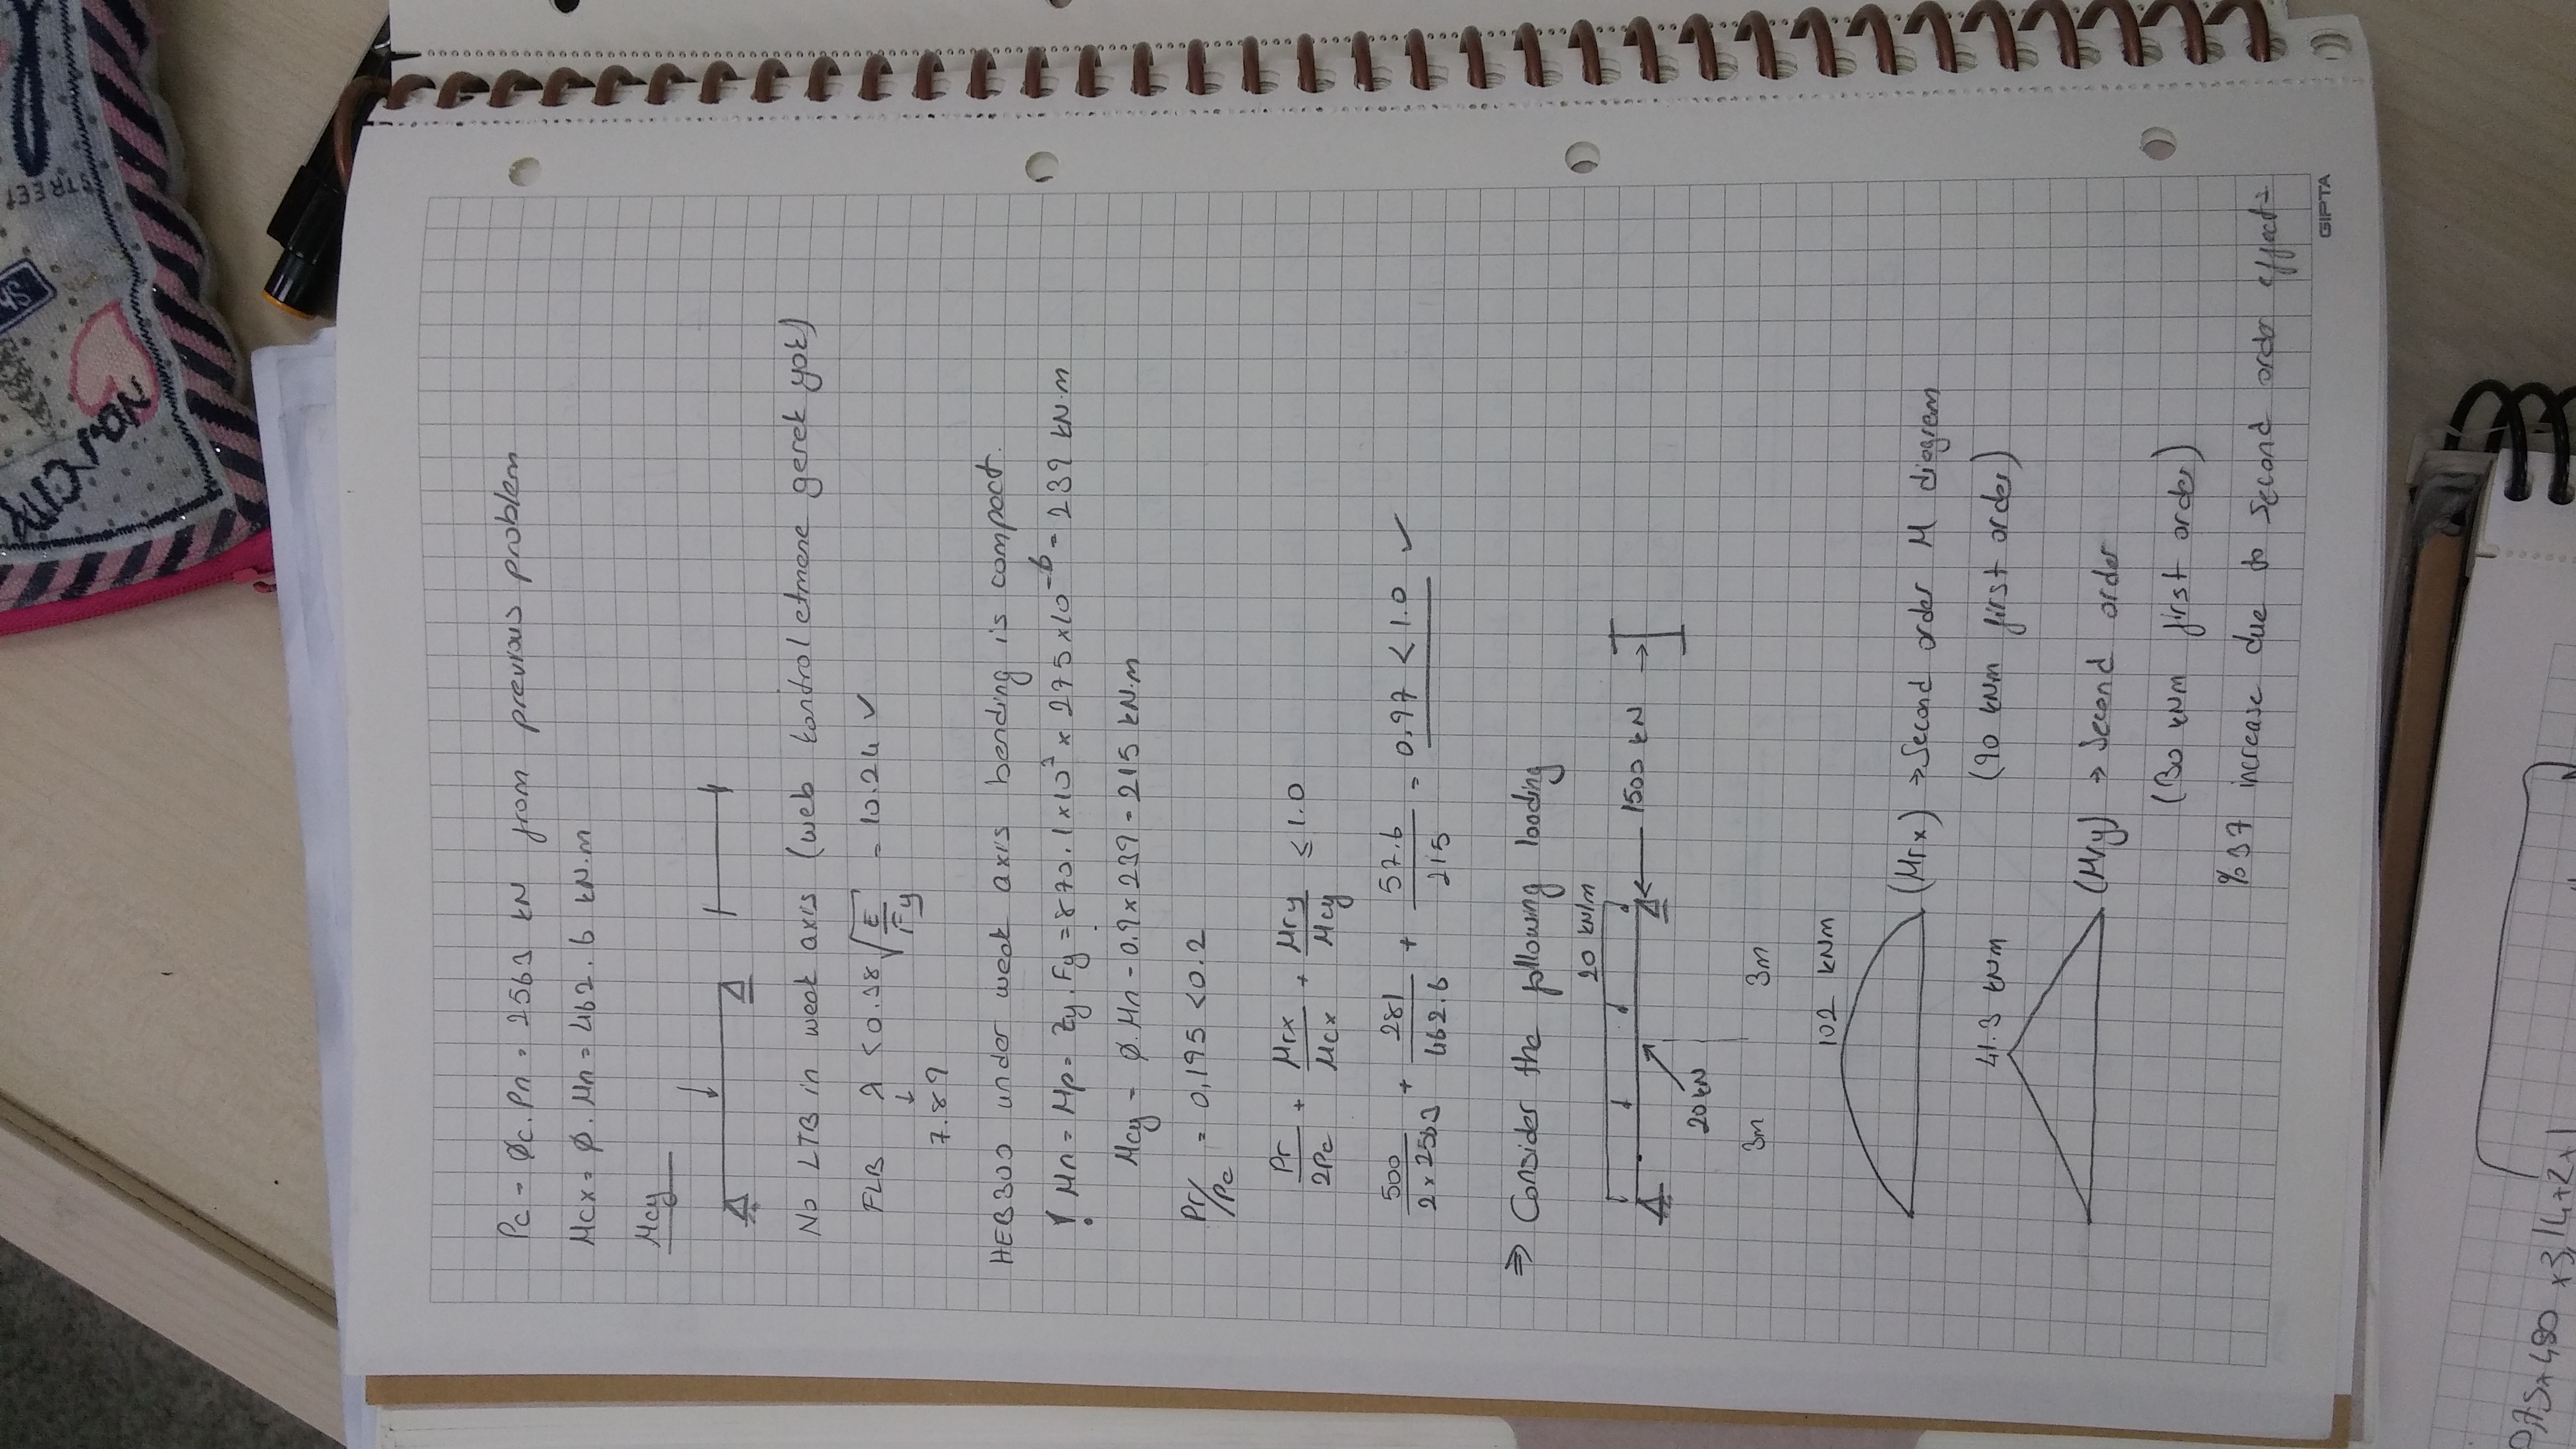 STREET
Pc = Øc.Pn = 2563 kN from previous problem
Mcx = Ø.Mn = 462.6 kN.m
Mcy
No LTB in weak axis (web kontrol etmene gerek yok)
FLB λ < 0.38 √E/Fy = 10.24 ✓
↓
7.89
HEB300 under weak axis bending is compact.
! Mn = Mp = Zy.Fy = 870.1x10³ x 275x10⁻⁶ = 239 kN.m
Mcy = Ø.Mn = 0.9x239 = 215 kN.m
Pr/Pc = 0,195 < 0.2
Pr/2Pc + Mrx/Mcx + Mry/Mcy ≤ 1.0
500/2x2563 + 281/462.6 + 57.6/215 = 0.97 < 1.0 ✓
⇒ Consider the following loading
20 kN/m
1500 kN
20 kN
3m 3m
102 kNm
(Mrx) → Second order M diagram
(90 kNm first order)
41.3 kNm
(Mry) → Second order
(30 kNm first order)
%37 increase due to second order effects
GIPTA
0,75x480 x3,14x2x1